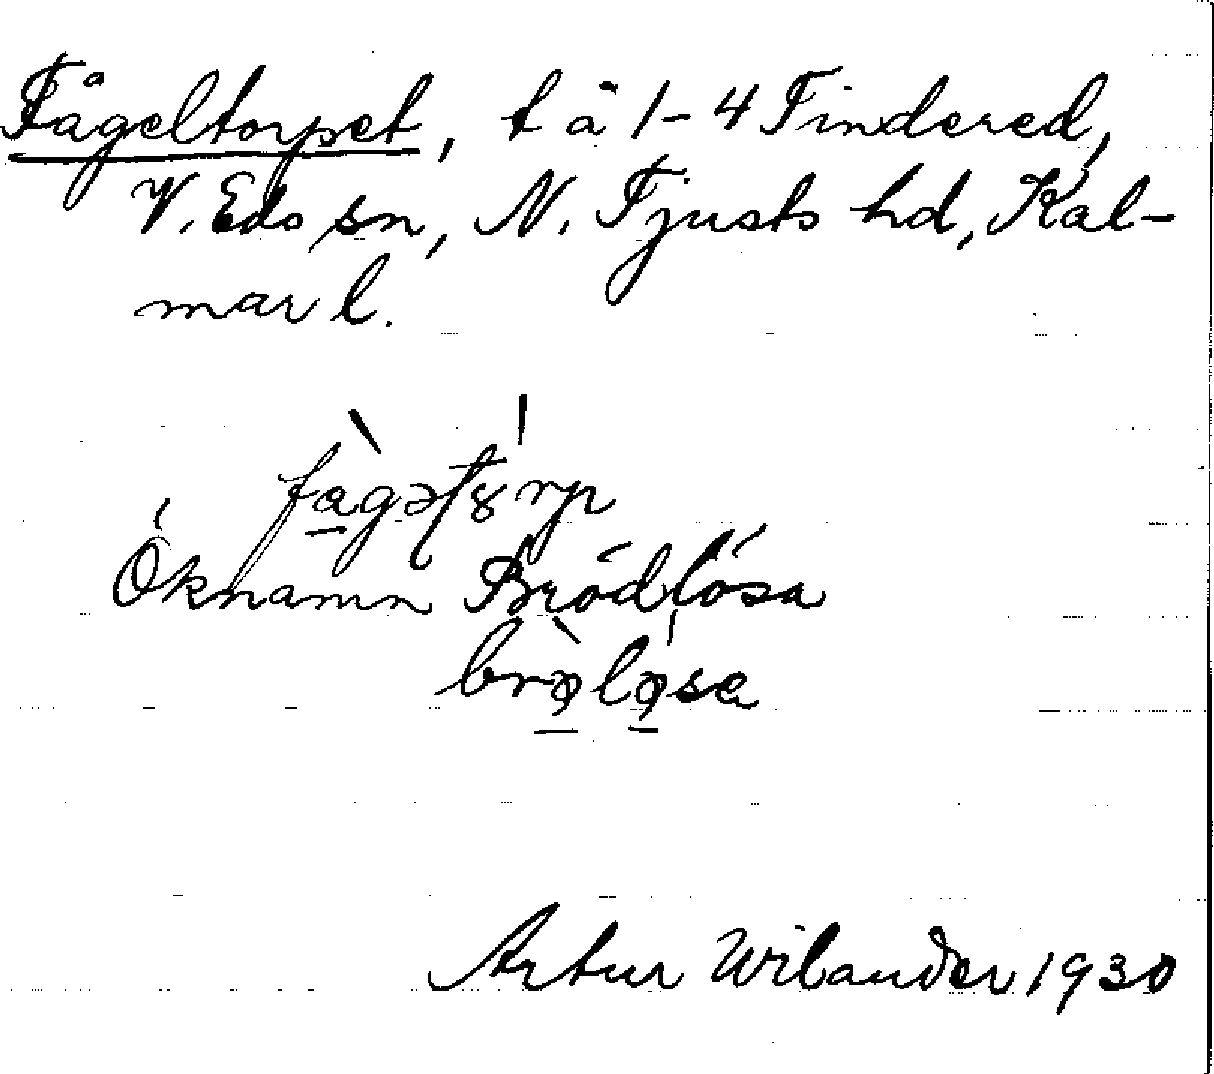 Fågeltorpet, t å 1-4 Tindered,
V. Eds sn, N. Tjusts hd, Kal-
mar l.
Öknamn Brödlösa
Artur Wilander 1930